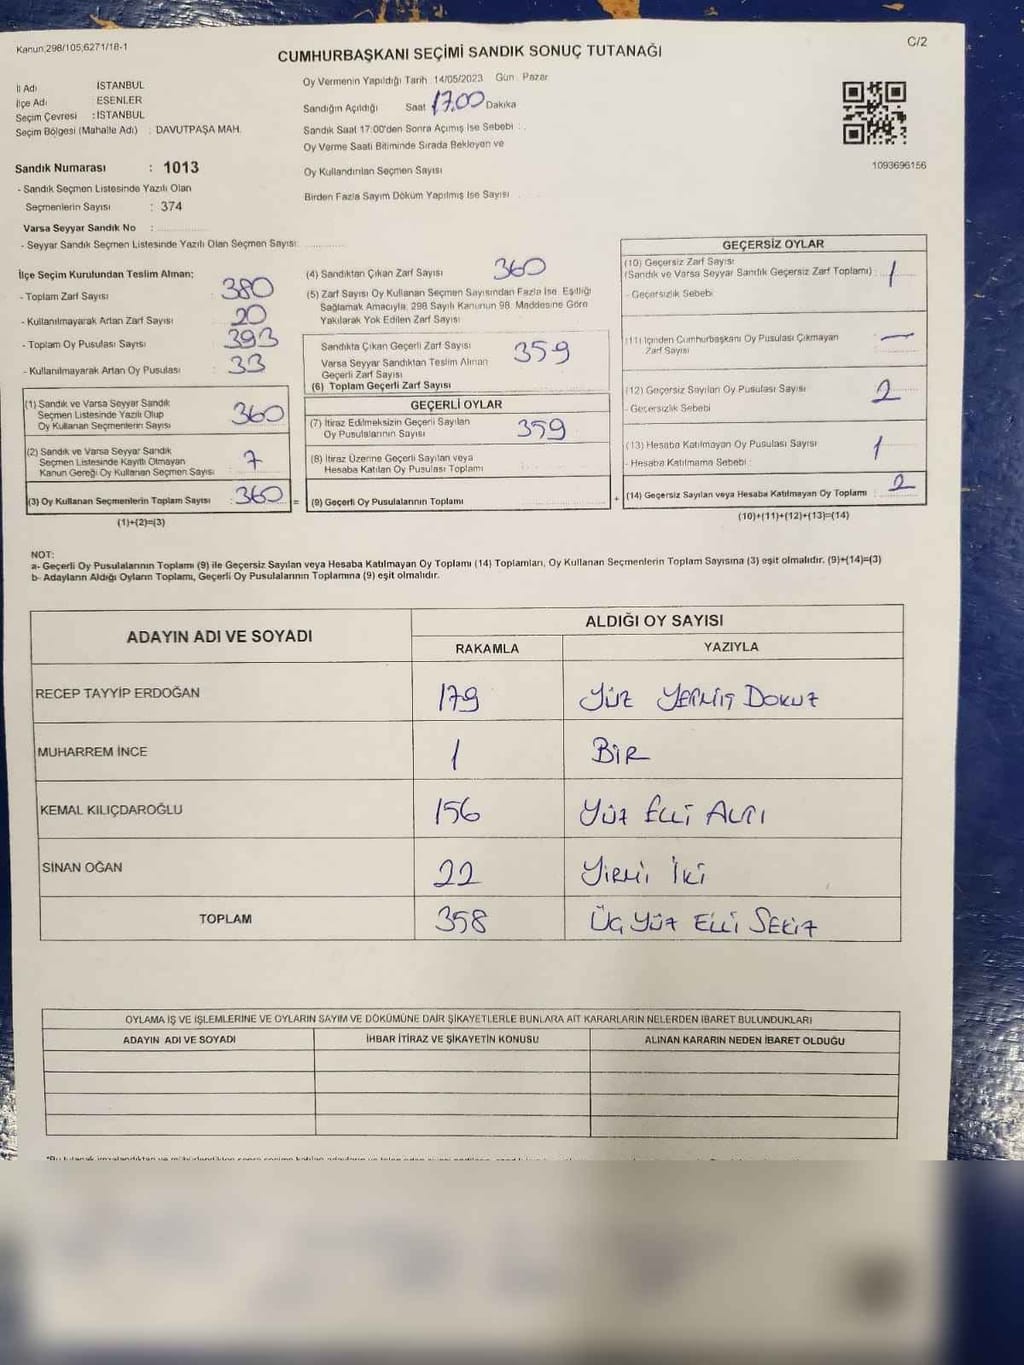 Kanun;298/105;6271/18-1
C/2
CUMHURBAŞKANI SEÇİMİ SANDIK SONUÇ TUTANAĞI
İl Adı İSTANBUL
İlçe Adı ESENLER
Seçim Çevresi : İSTANBUL
Seçim Bölgesi (Mahalle Adı) : DAVUTPAŞA MAH.
Oy Vermenin Yapıldığı Tarih 14/05/2023 Gün Pazar
Sandığın Açıldığı Saat 17.00 Dakika
Sandık Saat 17:00'den Sonra Açımış İse Sebebi :
Oy Verme Saati Bitiminde Sırada Bekleyen ve
Oy Kullandırılan Seçmen Sayısı
Birden Fazla Sayım Döküm Yapılmış İse Sayısı
1093696156
Sandık Numarası : 1013
- Sandık Seçmen Listesinde Yazılı Olan
Seçmenlerin Sayısı : 374
Varsa Seyyar Sandık No :
- Seyyar Sandık Seçmen Listesinde Yazılı Olan Seçmen Sayısı:
İlçe Seçim Kurulundan Teslim Alınan;
- Toplam Zarf Sayısı : 380
- Kullanılmayarak Artan Zarf Sayısı : 20
- Toplam Oy Pusulası Sayısı : 393
- Kullanılmayarak Artan Oy Pusulası : 33
(1) Sandık ve Varsa Seyyar Sandık
Seçmen Listesinde Yazılı Olup
Oy Kullanan Seçmenlerin Sayısı 360
(2) Sandık ve Varsa Seyyar Sandık
Seçmen Listesinde Kayıtlı Olmayan
Kanun Gereği Oy Kullanan Seçmen Sayısı 7
(3) Oy Kullanan Seçmenlerin Toplam Sayısı : 360 =
(1)+(2)=(3)
(4) Sandıktan Çıkan Zarf Sayısı 360
(5) Zarf Sayısı Oy Kullanan Seçmen Sayısından Fazla İse, Eşitliği
Sağlamak Amacıyla, 298 Sayılı Kanunun 98. Maddesine Göre
Yakılarak Yok Edilen Zarf Sayısı
Sandıkta Çıkan Geçerli Zarf Sayısı 359
Varsa Seyyar Sandıktan Teslim Alınan
Geçerli Zarf Sayısı
(6) Toplam Geçerli Zarf Sayısı
GEÇERLİ OYLAR
(7) İtiraz Edilmeksizin Geçerli Sayılan
Oy Pusulalarının Sayısı 359
(8) İtiraz Üzerine Geçerli Sayılan veya
Hesaba Katılan Oy Pusulası Toplamı
(9) Geçerli Oy Pusulalarının Toplamı +
GEÇERSİZ OYLAR
(10) Geçersiz Zarf Sayısı
(Sandık ve Varsa Seyyar Sandık Geçersiz Zarf Toplamı) : 1
- Geçersizlik Sebebi
(11) İçinden Cumhurbaşkanı Oy Pusulası Çıkmayan
Zarf Sayısı —
(12) Geçersiz Sayılan Oy Pusulası Sayısı 2
- Geçersizlik Sebebi
(13) Hesaba Katılmayan Oy Pusulası Sayısı 1
- Hesaba Katılmama Sebebi :
(14) Geçersiz Sayılan veya Hesaba Katılmayan Oy Toplamı 2
(10)+(11)+(12)+(13)=(14)
NOT:
a- Geçerli Oy Pusulalarının Toplamı (9) ile Geçersiz Sayılan veya Hesaba Katılmayan Oy Toplamı (14) Toplamları, Oy Kullanan Seçmenlerin Toplam Sayısına (3) eşit olmalıdır. (9)+(14)=(3)
b- Adayların Aldığı Oyların Toplamı, Geçerli Oy Pusulalarının Toplamına (9) eşit olmalıdır.
ADAYIN ADI VE SOYADI
ALDIĞI OY SAYISI
RAKAMLA YAZIYLA
RECEP TAYYİP ERDOĞAN 179 YÜZ YERMİŞ DOKUZ
MUHARREM İNCE 1 BİR
KEMAL KILIÇDAROĞLU 156 YÜZ ELLİ ALTI
SİNAN OĞAN 22 YİRMİ İKİ
TOPLAM 358 ÜÇ YÜZ ELLİ SEKİZ
OYLAMA İŞ VE İŞLEMLERİNE VE OYLARIN SAYIM VE DÖKÜMÜNE DAİR ŞİKAYETLERLE BUNLARA AİT KARARLARIN NELERDEN İBARET BULUNDUKLARI
ADAYIN ADI VE SOYADI İHBAR İTİRAZ VE ŞİKAYETİN KONUSU ALINAN KARARIN NEDEN İBARET OLDUĞU